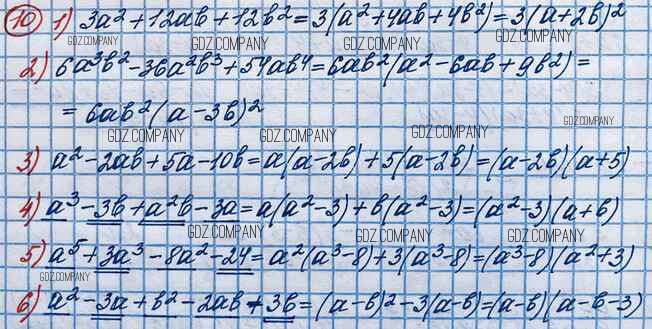 10 1) 3a² + 12ab + 12b² = 3(a² + 4ab + 4b²) = 3(a + 2b)²
GDZ.COMPANY GDZ.COMPANY GDZ.COMPANY
2) 6a³b² - 36a²b³ + 54ab⁴ = 6ab²(a² - 6ab + 9b²) =
GDZ.COMPANY
= 6ab²(a - 3b)²
GDZ.COMPANY GDZ.COMPANY GDZ.COMPANY GDZ.COMPANY
3) a² - 2ab + 5a - 10b = a(a - 2b) + 5(a - 2b) = (a - 2b)(a + 5)
GDZ.COMPANY
4) a³ - 3b + a²b - 3a = a(a² - 3) + b(a² - 3) = (a² - 3)(a + b)
GDZ.COMPANY GDZ.COMPANY GDZ.COMPANY
5) a⁵ + 3a³ - 8a² - 24 = a²(a³ - 8) + 3(a³ - 8) = (a³ - 8)(a² + 3)
GDZ.COMPANY GDZ.COMPANY GDZ.COMPANY GDZ.COMPANY
6) a² - 3a + b² - 2ab + 3b = (a - b)² - 3(a - b) = (a - b)(a - b - 3)